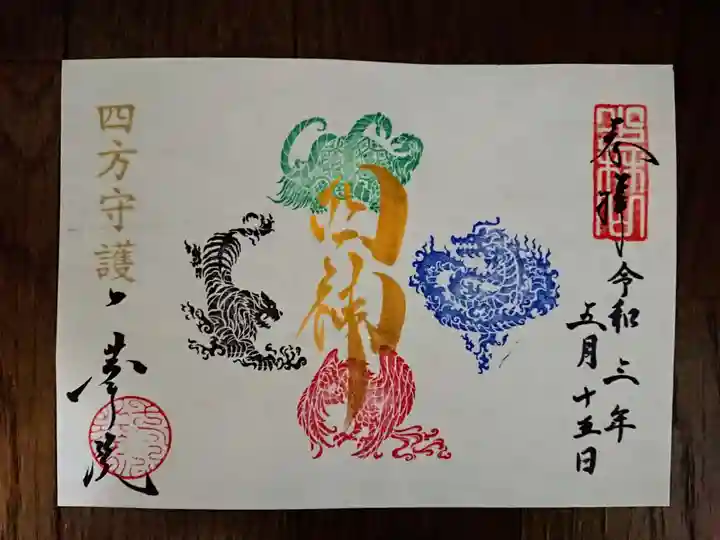 奉拝
令和三年
五月十五日
四神
四方守護